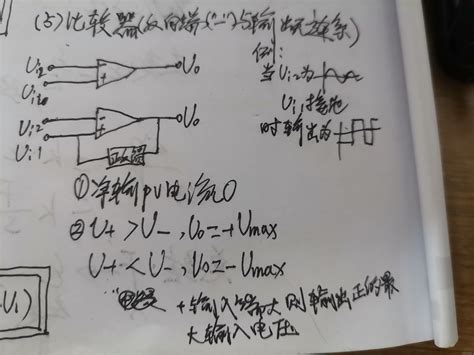 (5)比较器(反向端"-"与输出无连系)
Ui2 - + Uo
Ui1
例:
当Ui2为
Ui1接地
时输出为
Ui2 - + Uo
Ui1 正反馈
①净输入电流0
② U+ > U-, Uo=+Umax
U+ < U-, Uo=-Umax
+输入端大 则输出正的最
大输入电压
Ui)